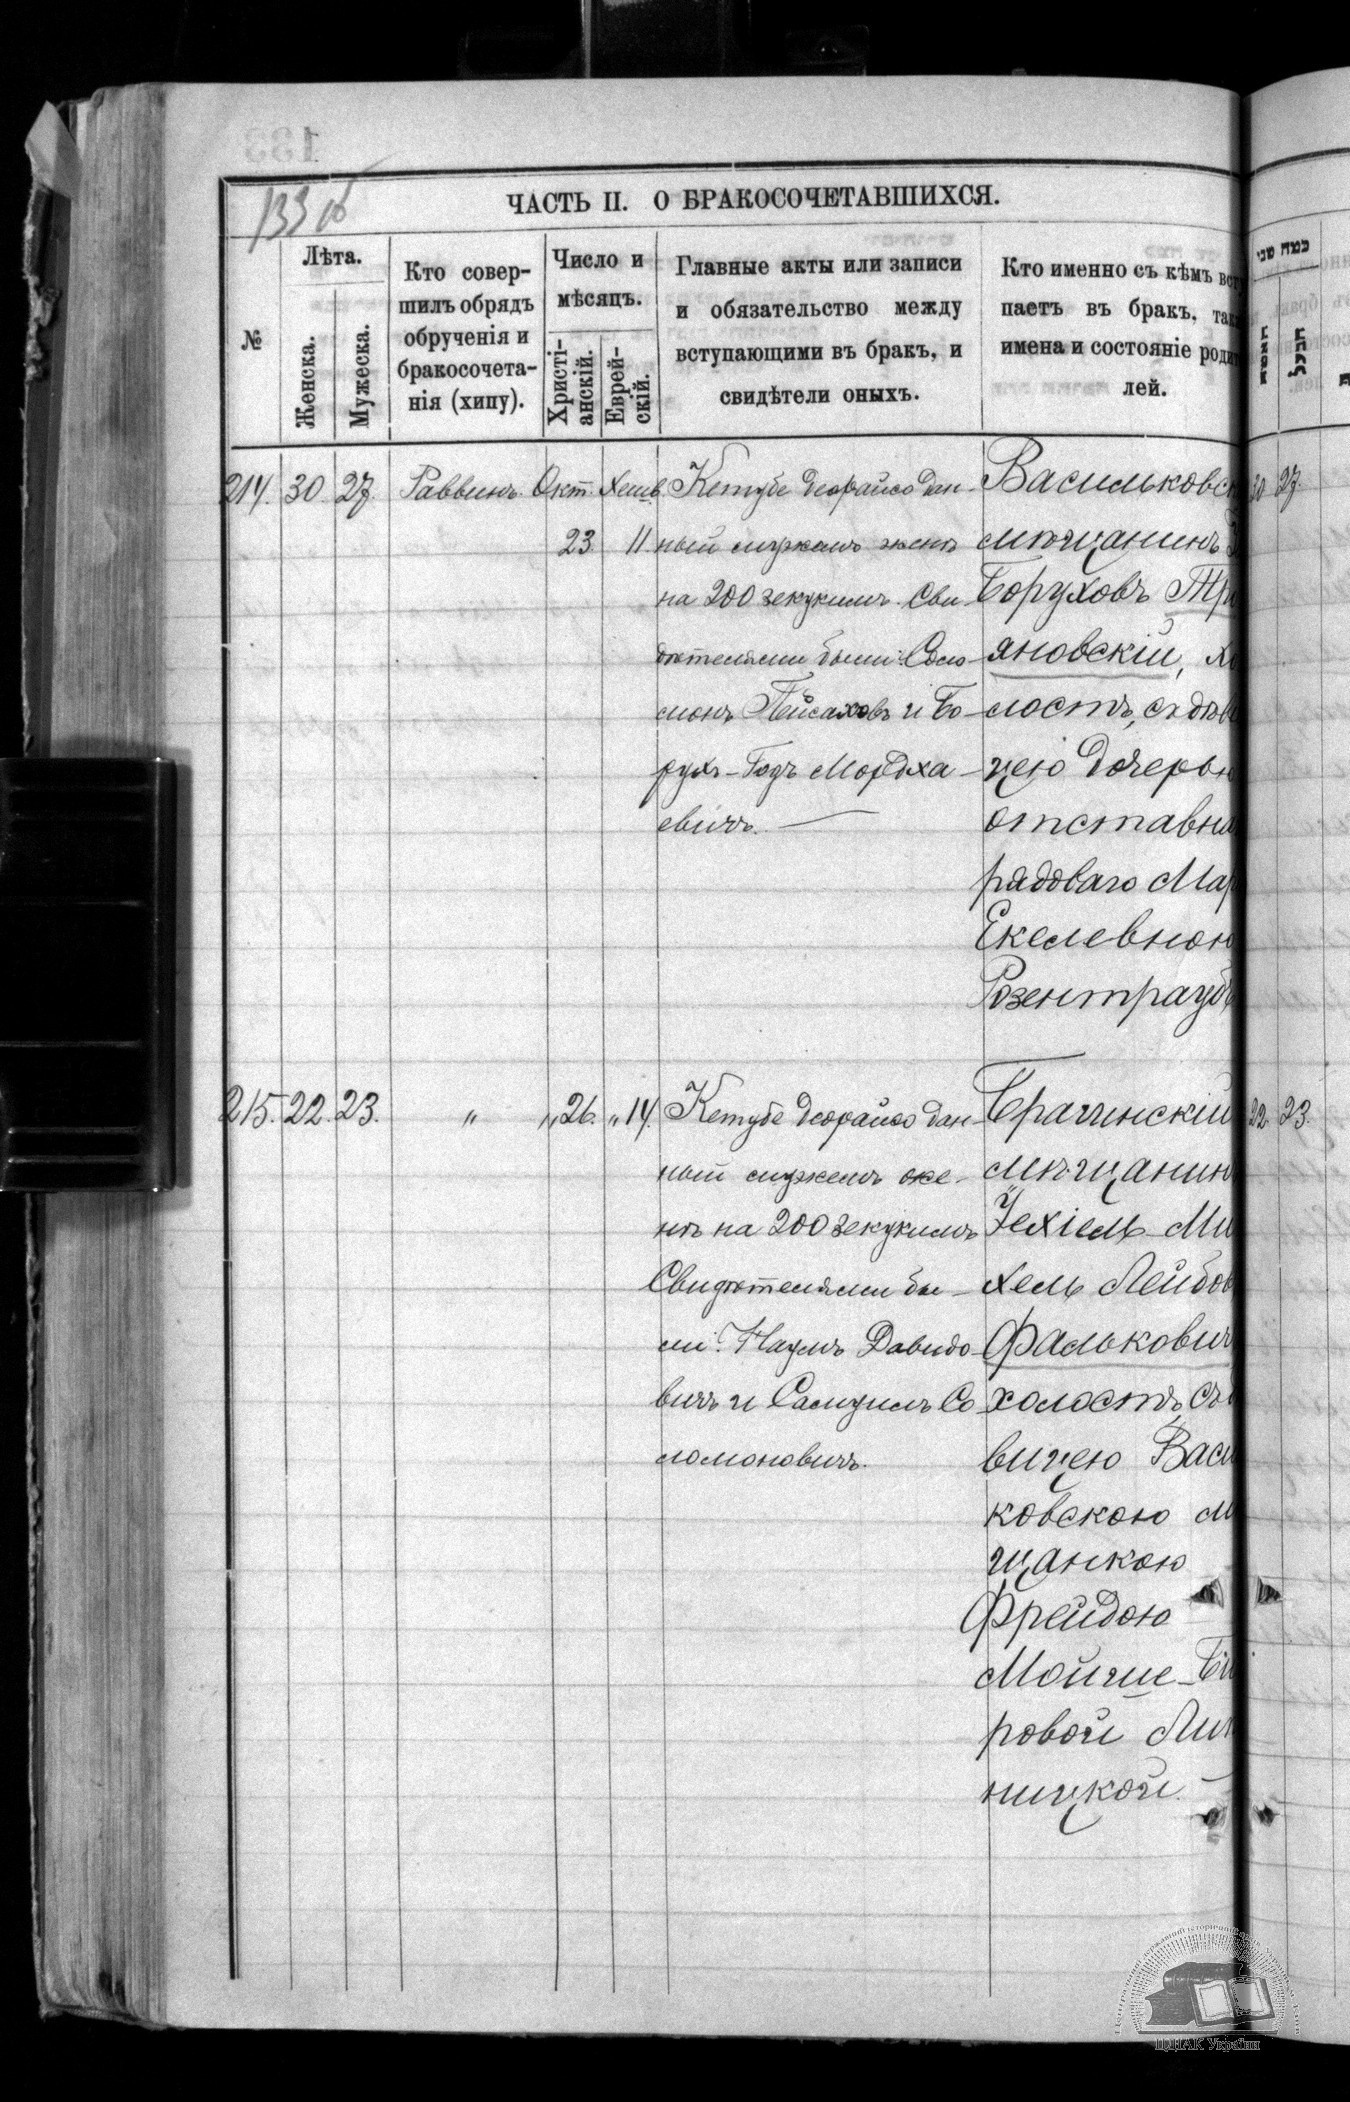 133 об
ЧАСТЬ II. О БРАКОСОЧЕТАВШИХСЯ.
№
Лѣта.
Женска.
Мужеска.
Кто совер-
шилъ обрядъ
обрученія и
бракосочета-
нія (хипу).
Число и
мѣсяцъ.
Христі-
анскій.
Еврей-
скій.
Главные акты или записи
и обязательство между
вступающими въ бракъ, и
свидѣтели оныхъ.
Кто именно съ кѣмъ всту
паетъ въ бракъ, так
имена и состояніе родит
лей.
כמה שני
האשה
הבעל
214. 30. 27. Раввинъ. Окт. Хешв.
23 11
Кетубе деорайсо дан-
ный мужемъ женѣ
на 200 зекукимъ. Сви-
дѣтелями были: Соло
монъ Пейсаховъ и Бо-
рухъ-Годъ Мордха-
евичъ.
Васильковск
мѣщанинъ
Боруховъ Три
яновскій, хо
лостъ, съ дѣви
цею дочерью
отставна
рядоваго Мар
Екелевною
Розентраубъ
30 27.
215. 22. 23. „ „ 26. „ 14.
Кетубе деорайсо дан-
ный мужемъ же-
нѣ на 200 зекукимъ
Свидѣтелями бы-
ли: Наумъ Давидо-
вичъ и Самуилъ Со
ломоновичъ.
Брагинскій
мѣщанин
Іехіель-Ми
хель Лейбов
Фалькович
холостъ, съ
вицею Васи
ковскою м
щанкою
Фрейдою
Мойше-Би
ровой Лип
ницкой.
22. 23.
ЦДІАК України